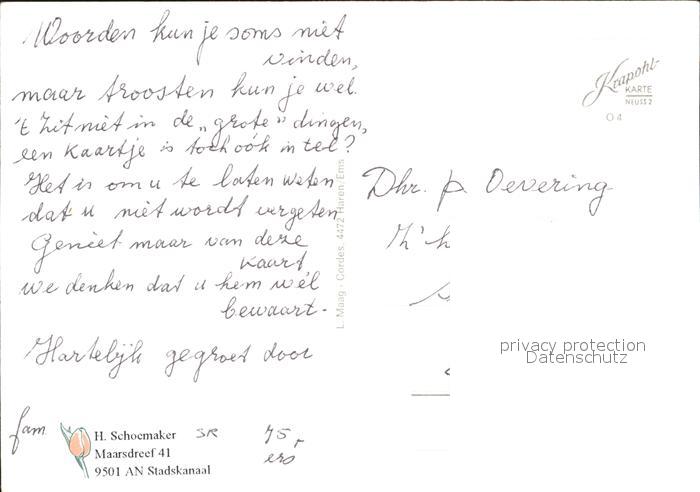 Woorden kun je soms niet
vinden,
maar troosten kun je wel.
't Zit niet in de „grote" dingen,
een kaartje is toch oók in tel?
Het is om u te laten weten
dat u niet wordt vergeten
Geniet maar van deze
kaart
we denken dat u hem wél
bewaart.
Hartelijk gegroet door
fam
H. Schoemaker
Maarsdreef 41
9501 AN Stadskanaal
SR 75
L. Maag - Cordes, 4472 Haren/Ems
Krapohl-
KARTE
NEUSS 2
04
Dhr. p. Oevering
privacy protection
Datenschutz